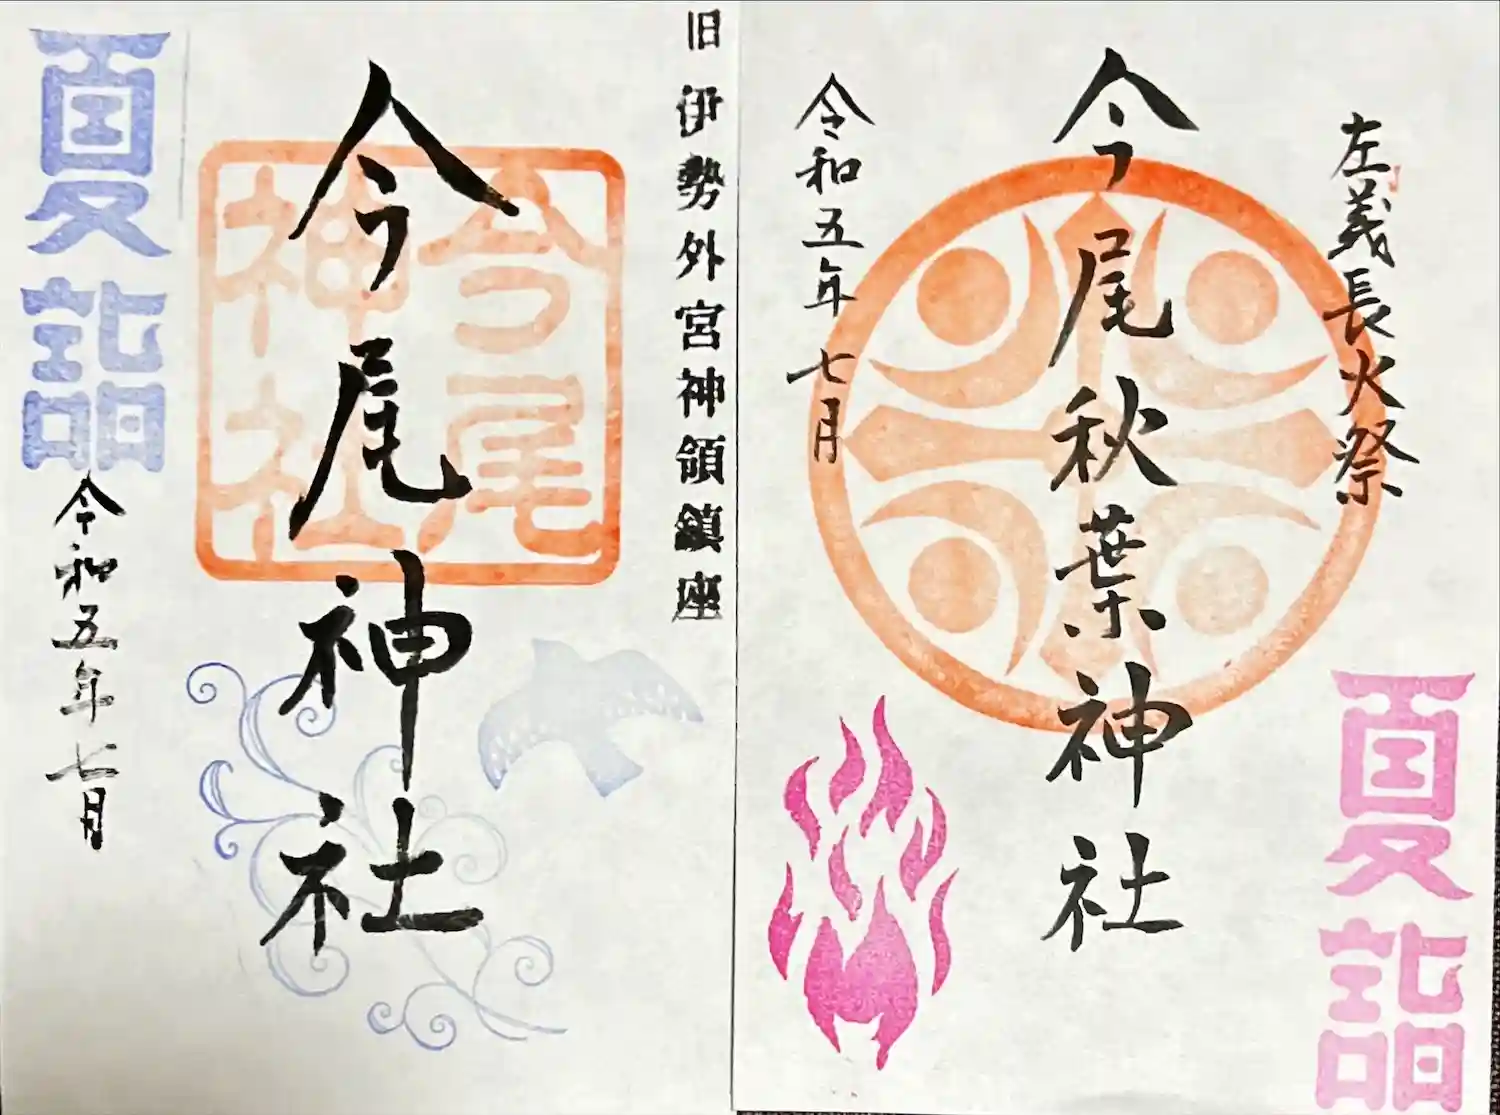 左義長火祭
今尾秋葉神社
令和五年七月
夏詣
旧 伊勢外宮神領鎮座
今尾神社
今尾
神社
夏詣
令和五年七月